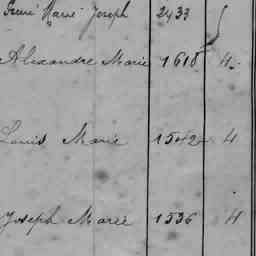 René Marie Joseph 2433
Alexandre Marie 1618 4.
Louis Marie 1542 4
Joseph Marie 1536 4